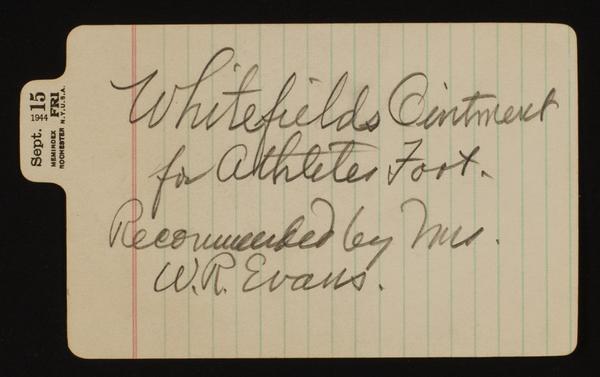 Sept. 15
1944 FRI
MEMINDEX
ROCHESTER N.Y. U.S.A.
Whitefields Ointment
for Athletes Foot.
Recommended by Mrs.
W.R. Evans.